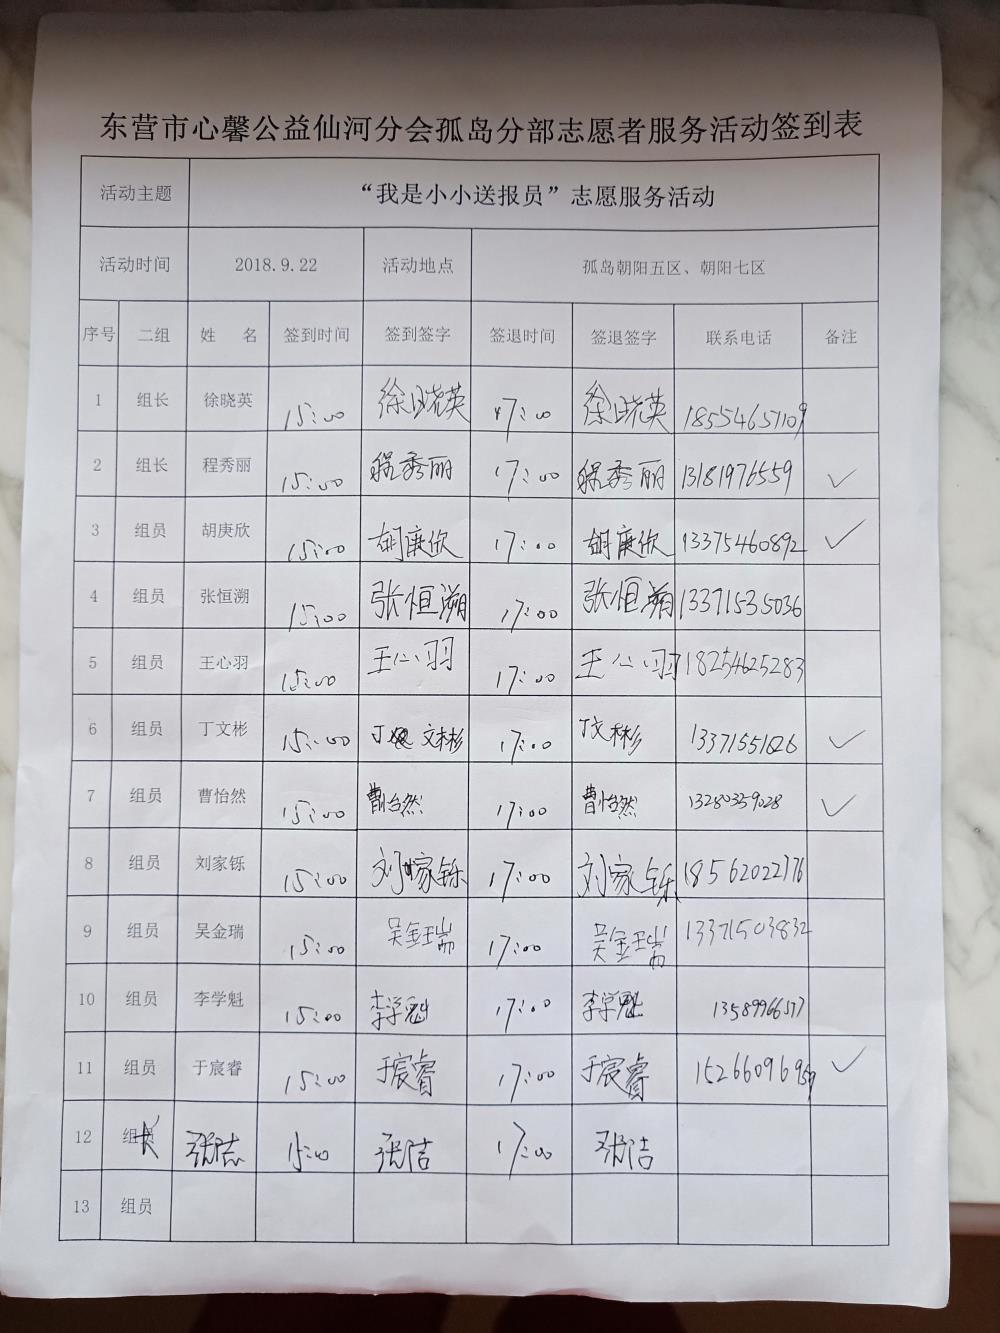 东营市心馨公益仙河分会孤岛分部志愿者服务活动签到表
活动主题 “我是小小送报员”志愿服务活动
活动时间 2018.9.22 活动地点 孤岛朝阳五区、朝阳七区
序号 二组 姓 名 签到时间 签到签字 签退时间 签退签字 联系电话 备注
1 组长 徐晓英 15:00 徐晓英 17:00 徐晓英 18554651109
2 组长 程秀丽 15:00 程秀丽 17:00 程秀丽 13181976559 ✓
3 组员 胡庚欣 15:00 胡庚欣 17:00 胡庚欣 13375460892 ✓
4 组员 张恒溯 15:00 张恒溯 17:00 张恒溯 13371535036
5 组员 王心羽 15:00 王心羽 17:00 王心羽 18254625283
6 组员 丁文彬 15:00 丁文彬 17:00 丁文彬 ✓
7 组员 曹怡然 15:00 曹怡然 17:00 曹怡然 13280359028 ✓
8 组员 刘家铄 15:00 刘家铄 17:00 刘家铄 18562022776
9 组员 吴金瑞 15:00 吴金瑞 17:00 吴金瑞 13371503832
10 组员 李学魁 15:00 李学魁 17:00 李学魁 13589966577
11 组员 于宸睿 15:00 于宸睿 17:00 于宸睿 ✓
12 组长 15:00 张洁 17:00 张洁
13 组员